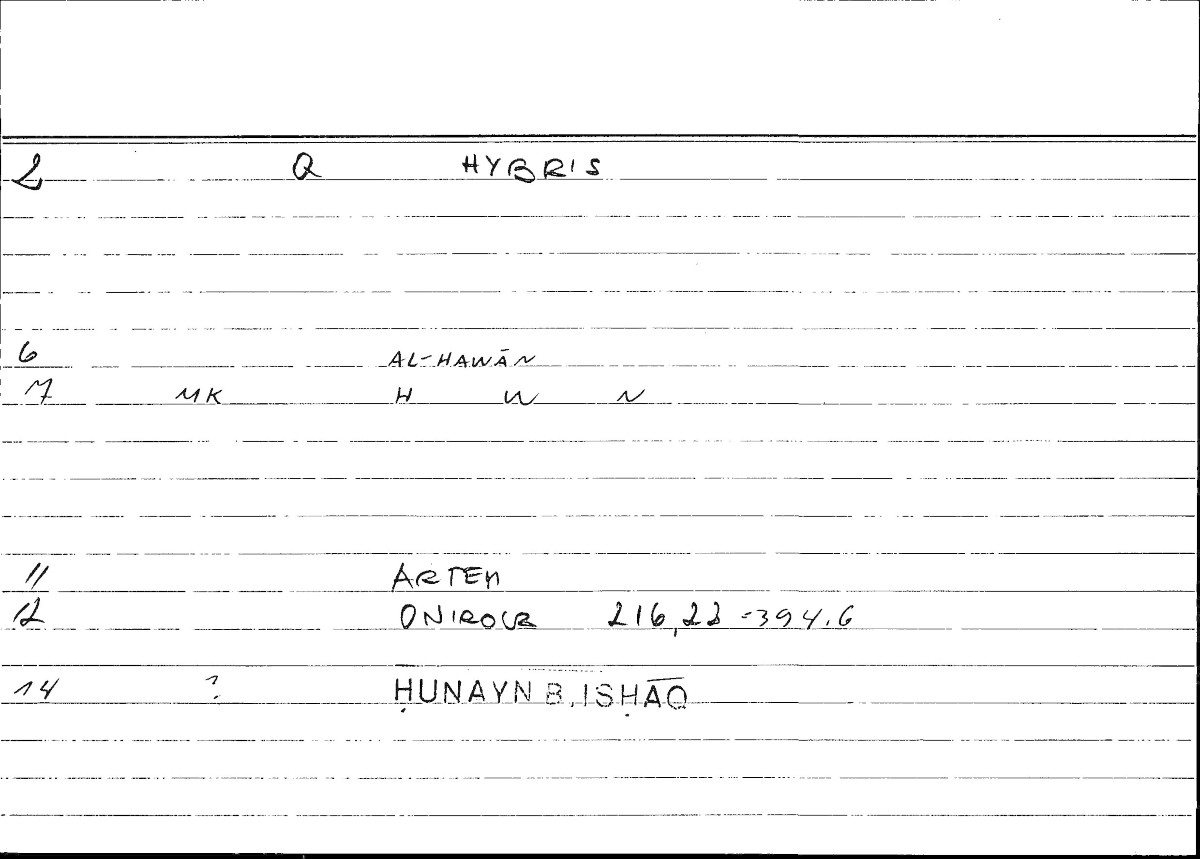 2 Q HYBRIS
6 AL-HAWĀN
7 MK H W N
11 ARTEM
12 ONIROCR 216,22 = 394.6
14 ? ḤUNAYN B. ISḤĀQ